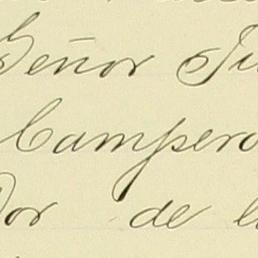 Señor Ju
Campero
dor de la